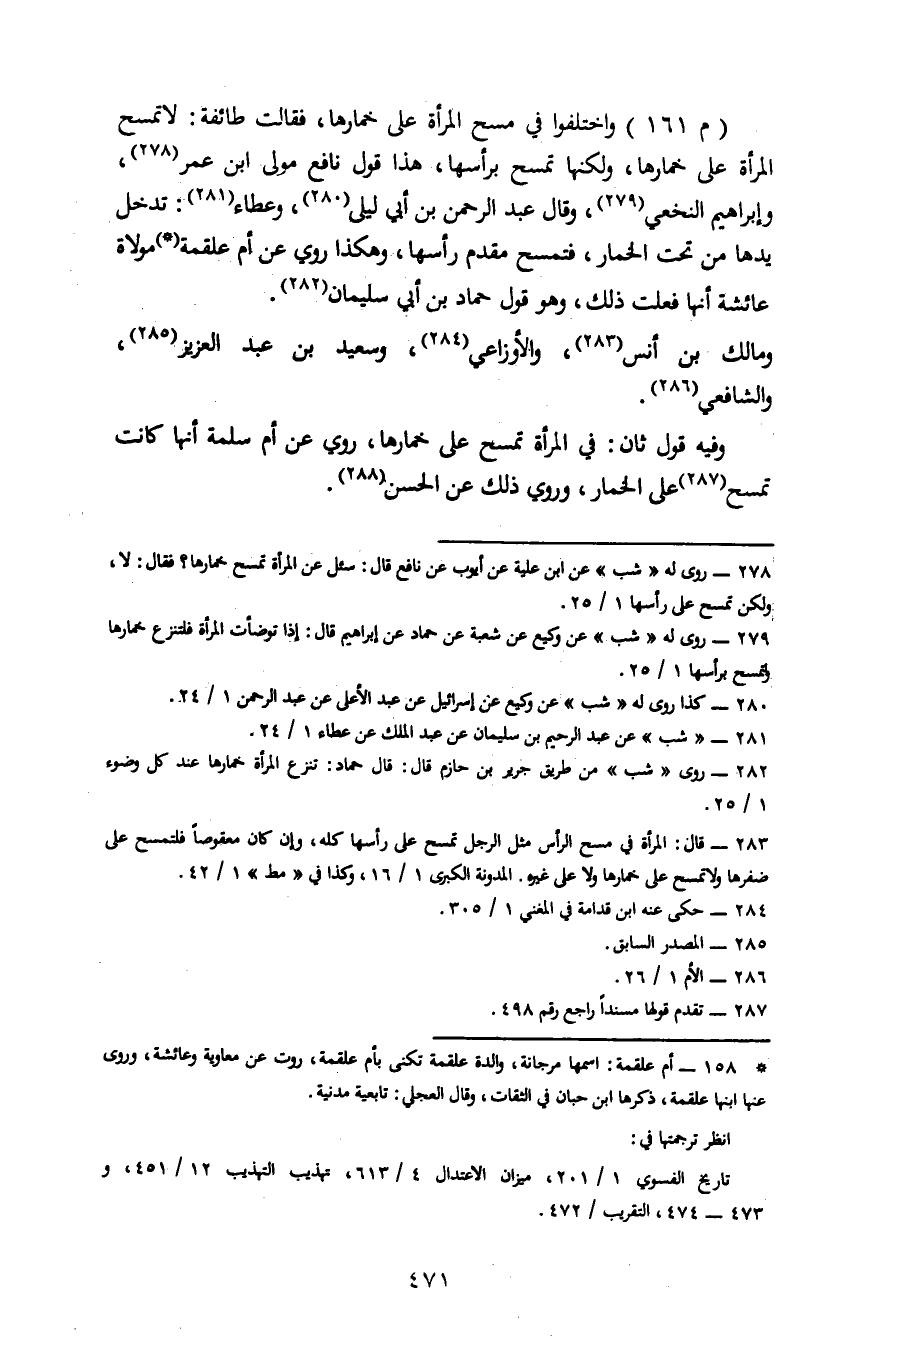 ( م ١٦١ ) واختلفوا في مسح المرأة على خمارها، فقالت طائفة: لاتمسح
المرأة على خمارها، ولكنها تمسح برأسها، هذا قول نافع مولى ابن عمر(٢٧٨)،
وإبراهيم النخعي(٢٧٩)، وقال عبد الرحمن بن أبي ليلى(٢٨٠)، وعطاء(٢٨١): تدخل
يدها من تحت الخمار، فتمسح مقدم رأسها، وهكذا روي عن أم علقمة(*)مولاة
عائشة أنها فعلت ذلك، وهو قول حماد بن أبي سليمان(٢٨٢).
ومالك بن أنس(٢٨٣)، والأوزاعي(٢٨٤)، وسعيد بن عبد العزيز(٢٨٥)،
والشافعي(٢٨٦).
وفيه قول ثان: في المرأة تمسح على خمارها، روي عن أم سلمة أنها كانت
تمسح(٢٨٧)على الخمار، وروي ذلك عن الحسن(٢٨٨).
٢٧٨ — روى له « شب » عن ابن علية عن أيوب عن نافع قال: سئل عن المرأة تمسح خمارها؟ فقال: لا،
ولكن تمسح على رأسها ١ / ٢٥.
٢٧٩ — روى له « شب » عن وكيع عن شعبة عن حماد عن إبراهيم قال: إذا توضأت المرأة فلتنزع خمارها
ولتمسح برأسها ١ / ٢٥.
٢٨٠ — كذا روى له « شب » عن وكيع عن إسرائيل عن عبد الأعلى عن عبد الرحمن ١ / ٢٤.
٢٨١ — « شب » عن عبد الرحيم بن سليمان عن عبد الملك عن عطاء ١ / ٢٤.
٢٨٢ — روى « شب » من طريق جرير بن حازم قال: قال حماد: تنزع المرأة خمارها عند كل وضوء
١ / ٢٥.
٢٨٣ — قال: المرأة في مسح الرأس مثل الرجل تمسح على رأسها كله، وإن كان معقوصاً فلتمسح على
ضفرها ولاتمسح على خمارها ولا على غيره. المدونة الكبرى ١ / ١٦، وكذا في « مط » ١ / ٤٢.
٢٨٤ — حكى عنه ابن قدامة في المغني ١ / ٣٠٥.
٢٨٥ — المصدر السابق.
٢٨٦ — الأم ١ / ٢٦.
٢٨٧ — تقدم قولها مسنداً راجع رقم ٤٩٨.
* ١٥٨ — أم علقمة: اسمها مرجانة، والدة علقمة تكنى بأم علقمة، روت عن معاوية وعائشة، وروى
عنها ابنها علقمة، ذكرها ابن حبان في الثقات، وقال العجلي: تابعية مدنية.
انظر ترجمتها في:
تاريخ الفسوي ١ / ٢٠١، ميزان الاعتدال ٤ / ٦١٣، تهذيب التهذيب ١٢ / ٤٥١، و
٤٧٣ — ٤٧٤، التقريب / ٤٧٢.
٤٧١